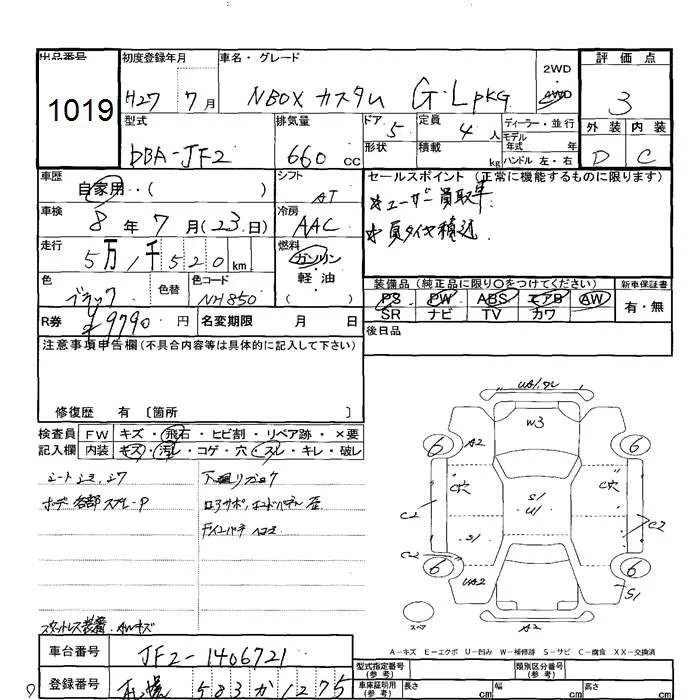 出品番号
1019
初度登録年月
H27 7月
車名・グレード
NBOX カスタム G・Lpkg
2WD
・
4WD
評価点
3
外装 内装
D C
型式
DBA-JF2
排気量
660 cc
ドア 5
形状
定員 4 人
積載 kg
ディーラー・並行
モデル
年式 年
ハンドル 左・右
車歴
自家用・・( )
シフト
AT
セールスポイント (正常に機能するものに限ります)
*ユーザー買取車
*夏タイヤ積込
車検
8年 7月(23日)
冷房
AAC
走行
5万1千520km
燃料
ガソリン
・
軽・油
( )
色
ブラック
色替
色コード
NH850
装備品 (純正品に限り〇をつけてください)
PS PW ABS エアB AW
SR ナビ TV カワ
新車保証書
有・無
R券 ¥9790 円
名変期限 月 日
後日品
注意事項申告欄(不具合内容等は具体的に記入して下さい)
修復歴 有 〔箇所 〕
検査員 FW キズ・飛石・ヒビ割・リペア跡・×要
記入欄 内装 キズ・汚レ・コゲ・穴・スレ・キレ・破レ
シート
ボデー各部スプレーP
下廻り
ロアサポ、エンドパネル
ヘコミ
スタットレス装着、AWキズ
UA1
W3
6 A2 6
C穴 C穴
S1
U1
C2 C2
S1
C2
6 6
UA2 S1
A2
スペア
A-キズ E-エクボ U-凹み W-補修跡 S-サビ C-腐食 XX-交換済
車台番号
JF2-1406721
登録番号
札幌 583 か 1275
型式指定番号
(参考)
類別区分番号
(参考)
車庫証明用
(参考)
長さ cm
幅 cm
高さ cm